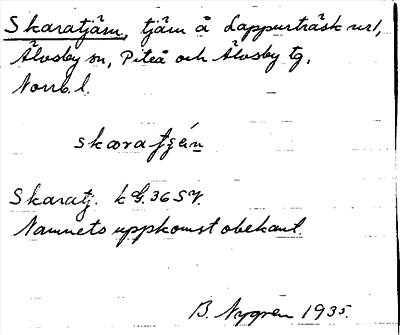 Skaratjärn, tjärn å Lappträsk url,
Älvsby sn, Piteå och Älvsby tg,
Norrb. l.
skaratjärn
Skaratj. kG. 36 SV.
Namnets uppkomst obekant.
B. Nygren 1935.